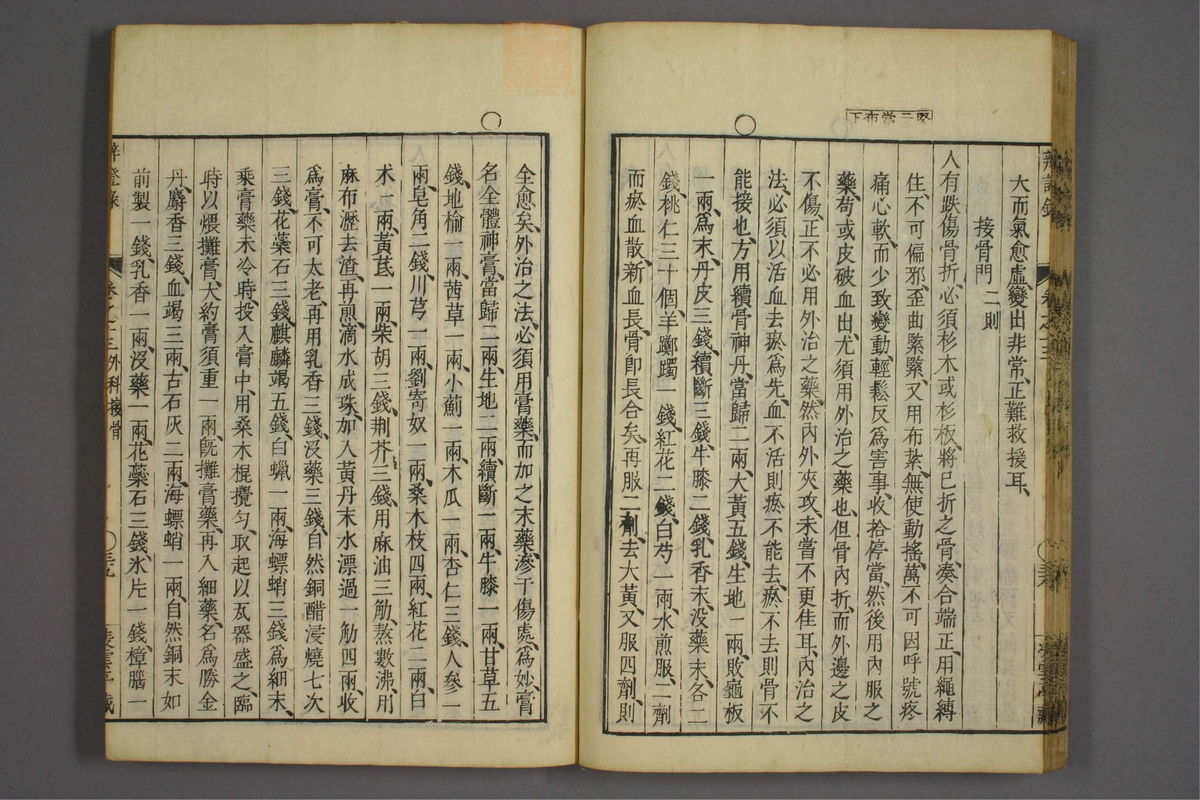 緊三當布下
大而氣愈虛、變出非常、正難救援耳、
接骨門二則
人有跌傷骨折、必須杉木或杉板、將已折之骨、湊合端正、用繩縛
住、不可偏邪、歪曲緊緊、又用布紮、無使動搖、萬不可因呼號疼
痛、心軟而少致變動、輕鬆反爲害事、收拾停當、然後用內服之
藥、苟或皮破血出、尤須用外治之藥也、但骨內折、而外邊之皮
不傷、正不必用外治之藥、然內外夾攻、未嘗不更佳耳、內治之
法、必須以活血去瘀爲先、血不活則瘀不能去、瘀不去則骨不
能接也、方用續骨神丹、當歸二兩、大黃五錢、生地一兩、敗龜板
一兩、爲末、丹皮三錢、續斷三錢、牛膝二錢、乳香末、沒藥末、各二
錢、桃仁三十個、羊躑躅一錢、紅花二錢、白芍一兩、水煎服、二劑
而瘀血散、新血長、骨卽長合矣、再服二劑、去大黃、又服四劑、則
全愈矣、外治之法、必須用膏藥、而加之末藥、滲于傷處、爲妙、膏
名全體神膏、當歸二兩、生地二兩、續斷一兩、牛膝一兩、甘草五
錢、地榆一兩、茜草一兩、小薊一兩、木瓜一兩、杏仁三錢、人參一
兩、皂角二錢、川芎一兩、劉寄奴一兩、桑木枝四兩、紅花二兩、白
朮一兩、黃芪一兩、柴胡三錢、荆芥三錢、用麻油三觔、熬數沸、用
麻布瀝去渣、再煎、滴水成珠、加入黃丹末、水漂過一觔四兩、收
爲膏、不可太老、再用乳香三錢、沒藥三錢、自然銅醋浸燒七次
三錢、花藥石三錢、麒麟竭五錢、白蠟一兩、海螵蛸三錢、爲細末、
乘膏藥未冷時、投入膏中、用桑木棍攪勻、取起以瓦器盛之、臨
時以煨攤膏、大約膏須重一兩、旣攤膏藥、再入細藥、名爲勝金
丹、麝香三錢、血竭三兩、古石灰二兩、海螵蛸一兩、自然銅末如
前製一錢、乳香一兩、沒藥一兩、花藥石三錢、氷片一錢、樟腦一
卷之十三 外科接骨